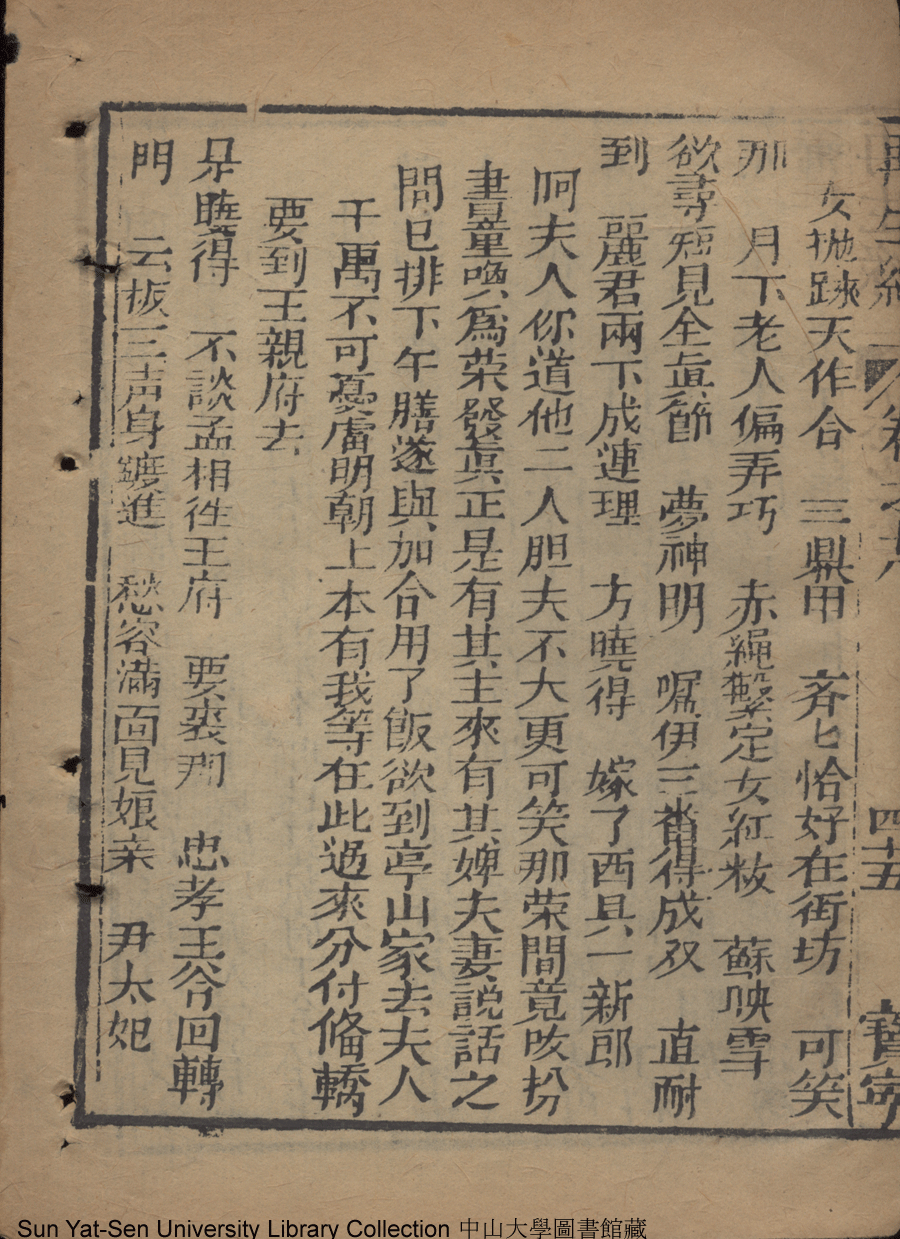 再生緣 卷之十六 四十五 寶寧
女抛跡天作合 三鼎甲 斉匕恰好在街坊 可笑
那 月下老人偏弄巧 赤繩繫定女紅粧 蘇映雪
欲尋短見全貞節 夢神明 嘱伊三番得成双 直耐
到 麗君兩下成連理 方曉得 嫁了西具一新郎
呵夫人你道他二人胆夫不大更可笑那荣間竟改扮
書童喚爲荣發眞正是有其主來有其婢夫妻説話之
問已排下午膳遂與加合用了飯欲到亭山家去夫人
千萬不可憂慮明朝上本有我等在此過來分付俻轎
要到王親府去
旲曉得 不談孟相徃王府 要表那 忠孝王爷回轉
門 云扳三声身纔進 愁容滿面見娘亲 尹太妃
Sun Yat-Sen University Library Collection 中山大學圖書館藏